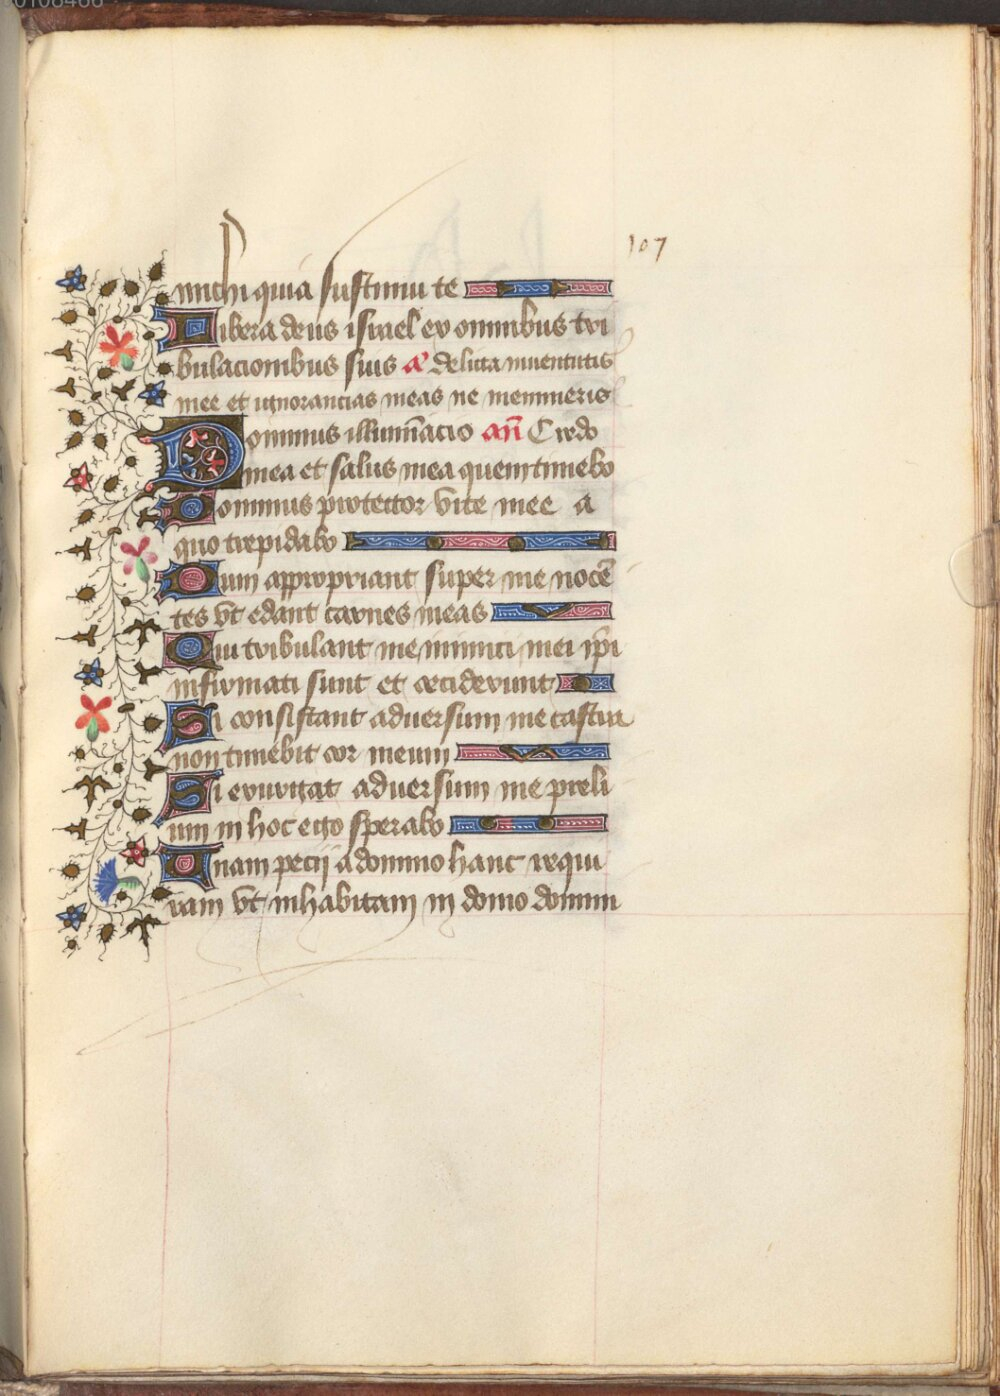 00108466
107
michi quia sustinui te
Libera deus israel ex omnibus tri
bulacionibus suis a delicta iuuentutis
mee et ignorancias meas ne memineris
Dominus illuminacio an Credo
mea et salus mea quem timebo
Dominus protector vite mee a
quo trepidabo
Dum appropriant super me nocē
tes vt edant carnes meas
Qui tribulant me inimici mei ip̄i
infirmati sunt et ceciderunt
Si consistant aduersum me castra
non timebit cor meum
Si exurgat aduersum me preli
um in hoc ego sperabo
Unam pecij a domino hanc requi
ram vt inhabitam in domo domini